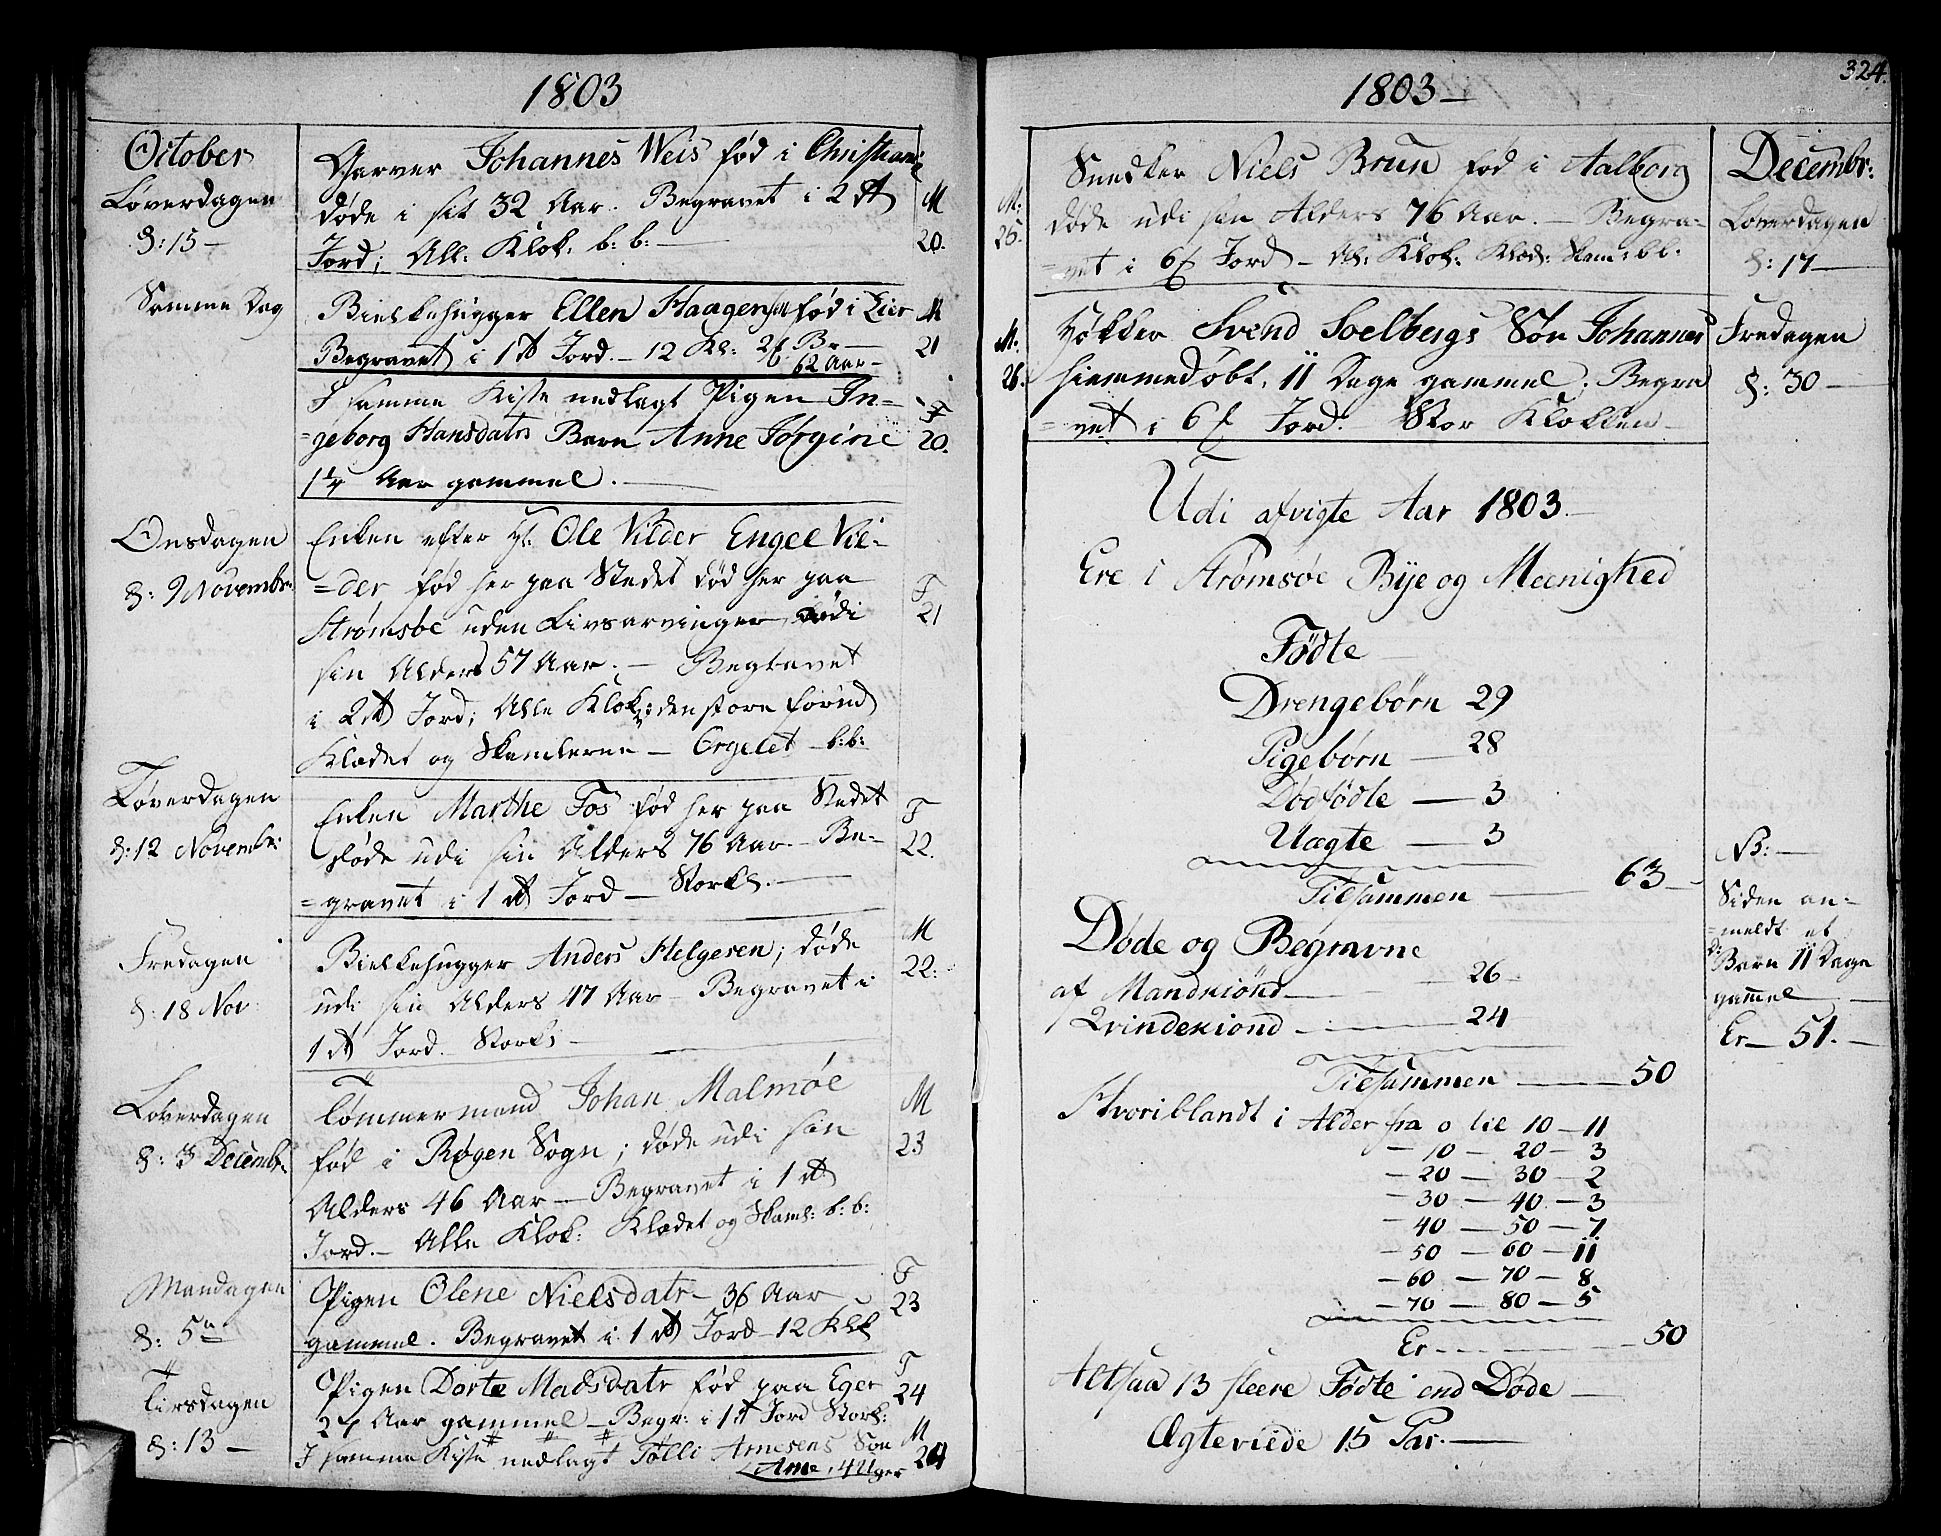 1803
October
Løverdagen
d: 15 –
Garver Johannes Weis fød i Christiania
døde i sit 32 Aar. Begravet i 2 rt
Jord; All: Klok. b: b: —
M
20.
Samme Dag
Bielkehugger Ellen Haagens fød i Lier
Begravet i 1 rt Jord. – 12 Kl: Br —
62 Aar –
M
21
I samme Kiste nedlagt Pigen In-
=geborg Hansdatrs Barn Anne Jörgine
1 1/4 Aar gammel. —
F
20.
Onsdagen
d: 9 Novembr:
Enken efter Ole Vilder Engel Vil-
=der fød her paa Stedet død her paa
Strømsöe uden Livsarvinger udi
sin Alders 57 Aar. — Begravet
i 2 rt Jord; Alle Klok: den store forud
Klædet og Skamlerne — Orgelet – b: b:
F
21
Løverdagen
d: 12 Novembr:
Enken Marthe Fos fød her paa Stedet
døde udi sin Alders 76 Aar. – Be-
=gravet i 1 rt Jord — Storkl. —
F
22.
Fredagen
d: 18 Nov:
Bielkehugger Anders Helgesen; døde
udi sin Alders 47 Aar – Begravet i
1 rt Jord. Storkl –
M
22:
Løverdagen
d: 3 Decembr.
Tømmermand Johan Malmöe
fød i Røgen Sogn; døde udi sin
Alders 46 Aar — Begravet i 1 rt
Jord. – Alle Klok: Klædet og Skaml: b: b:
M
23
Mandagen
d: 5te
Pigen Olene Nielsdatr – 36 Aar
gammel. Begravet i 1 rt Jord – 12 Klk
F
23
Tirsdagen
d: 13 –
Pigen Dorte Madsdatr fød paa Eger
27 Aar gammel – Begr: i 1 rt Jord Stork:
F
24
I samme Kiste nedlagt Tölli Arnesens Søn
Arne, 4 Uger
M
24
1803 –
324.
M:
25.
Snedker Niels Brun fød i Aalborg
døde udi sin Alders 76 Aar. — Begra-
=vet i 6 ß Jord – Al: Klok: Klæd: Skam: b b.
Decembr:
Løverdagen
d: 17 —
M:
26.
Høkker Svend Soelbergs Søn Johannes
hiemmedøbt, 11 Dage gammel; Begra
=vet i 6 ß Jord. Stor Klokken –
Fredagen
d: 30 —
Udi afvigte Aar 1803 –
Ere i Strømsöe Bÿe og Meenighed
Födte –
Drengebörn 29
Pigebörn — 28
Dödfödte — 3
Uægte — 3
Tilsammen — 63 –
Døde og Begravne
af Mandkiönd — 26 –
Qvindekiönd — 24
Tilsammen — 50
NB: —
Siden an-
=meldt et
D: Barn 11 Dage
gammel —
Er — 51. —
Hvoriblandt i Alder fra 0 til 10 – 11
– 10 – 20 – 3
– 20 – 30 – 2
– 30 – 40 – 3
– 40 – 50 – 7
– 50 – 60 – 11
– 60 – 70 – 8
– 70 – 80 – 5
Er — 50
Altsaa 13 fleere Fødte end Døde —
Ægteviede 15 Par. —